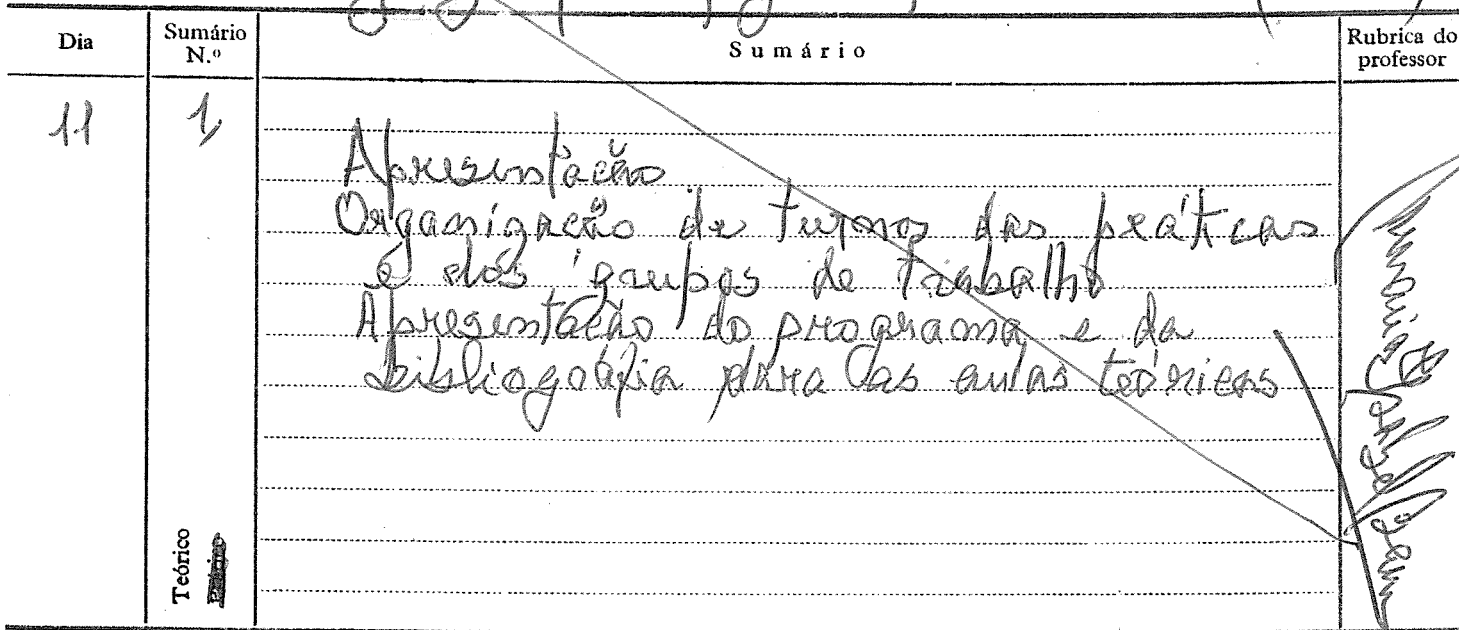 Dia
Sumário N.º
Sumário
Rubrica do professor
11
1
Apresentação
Organização de turnos das práticas
e dos grupos de trabalho
Apresentação do programa e da
bibliografia para as aulas teóricas
Teórico
Maria Isabel